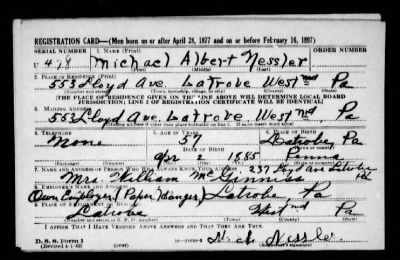 REGISTRATION CARD—(Men born on or after April 28, 1877 and on or before February 16, 1897)
SERIAL NUMBER 1. NAME (Print) ORDER NUMBER
U 478 Michael Albert Nessler
(First) (Middle) (Last)
2. PLACE OF RESIDENCE (Print)
553 Lloyd Ave Latrobe West'md Pa
(Number and street) (Town, township, village, or city) (County) (State)
[THE PLACE OF RESIDENCE GIVEN ON THE LINE ABOVE WILL DETERMINE LOCAL BOARD
JURISDICTION; LINE 2 OF REGISTRATION CERTIFICATE WILL BE IDENTICAL]
3. MAILING ADDRESS
553 Lloyd Ave. Latrobe West'md Pa
4. TELEPHONE 5. AGE IN YEARS 6. PLACE OF BIRTH
None 57 Latrobe Pa
DATE OF BIRTH
Apr 2 1885 Penna
(Exchange) (Number) (Mo.) (Day) (Yr.) (State or country)
7. NAME AND ADDRESS OF PERSON WHO WILL ALWAYS KNOW YOUR ADDRESS
Mrs. William 237 Lloyd Ave Latrobe Pa
8. EMPLOYER'S NAME AND ADDRESS
Own Employer (Paper Hanger) Latrobe Pa
9. PLACE OF EMPLOYMENT OR BUSINESS
Latrobe West'md Pa
(Number and street or R. F. D. number) (Town) (County) (State)
I AFFIRM THAT I HAVE VERIFIED ABOVE ANSWERS AND THAT THEY ARE TRUE.
D. S. S. Form 1
(Revised 4-1-42) (over) Nessler